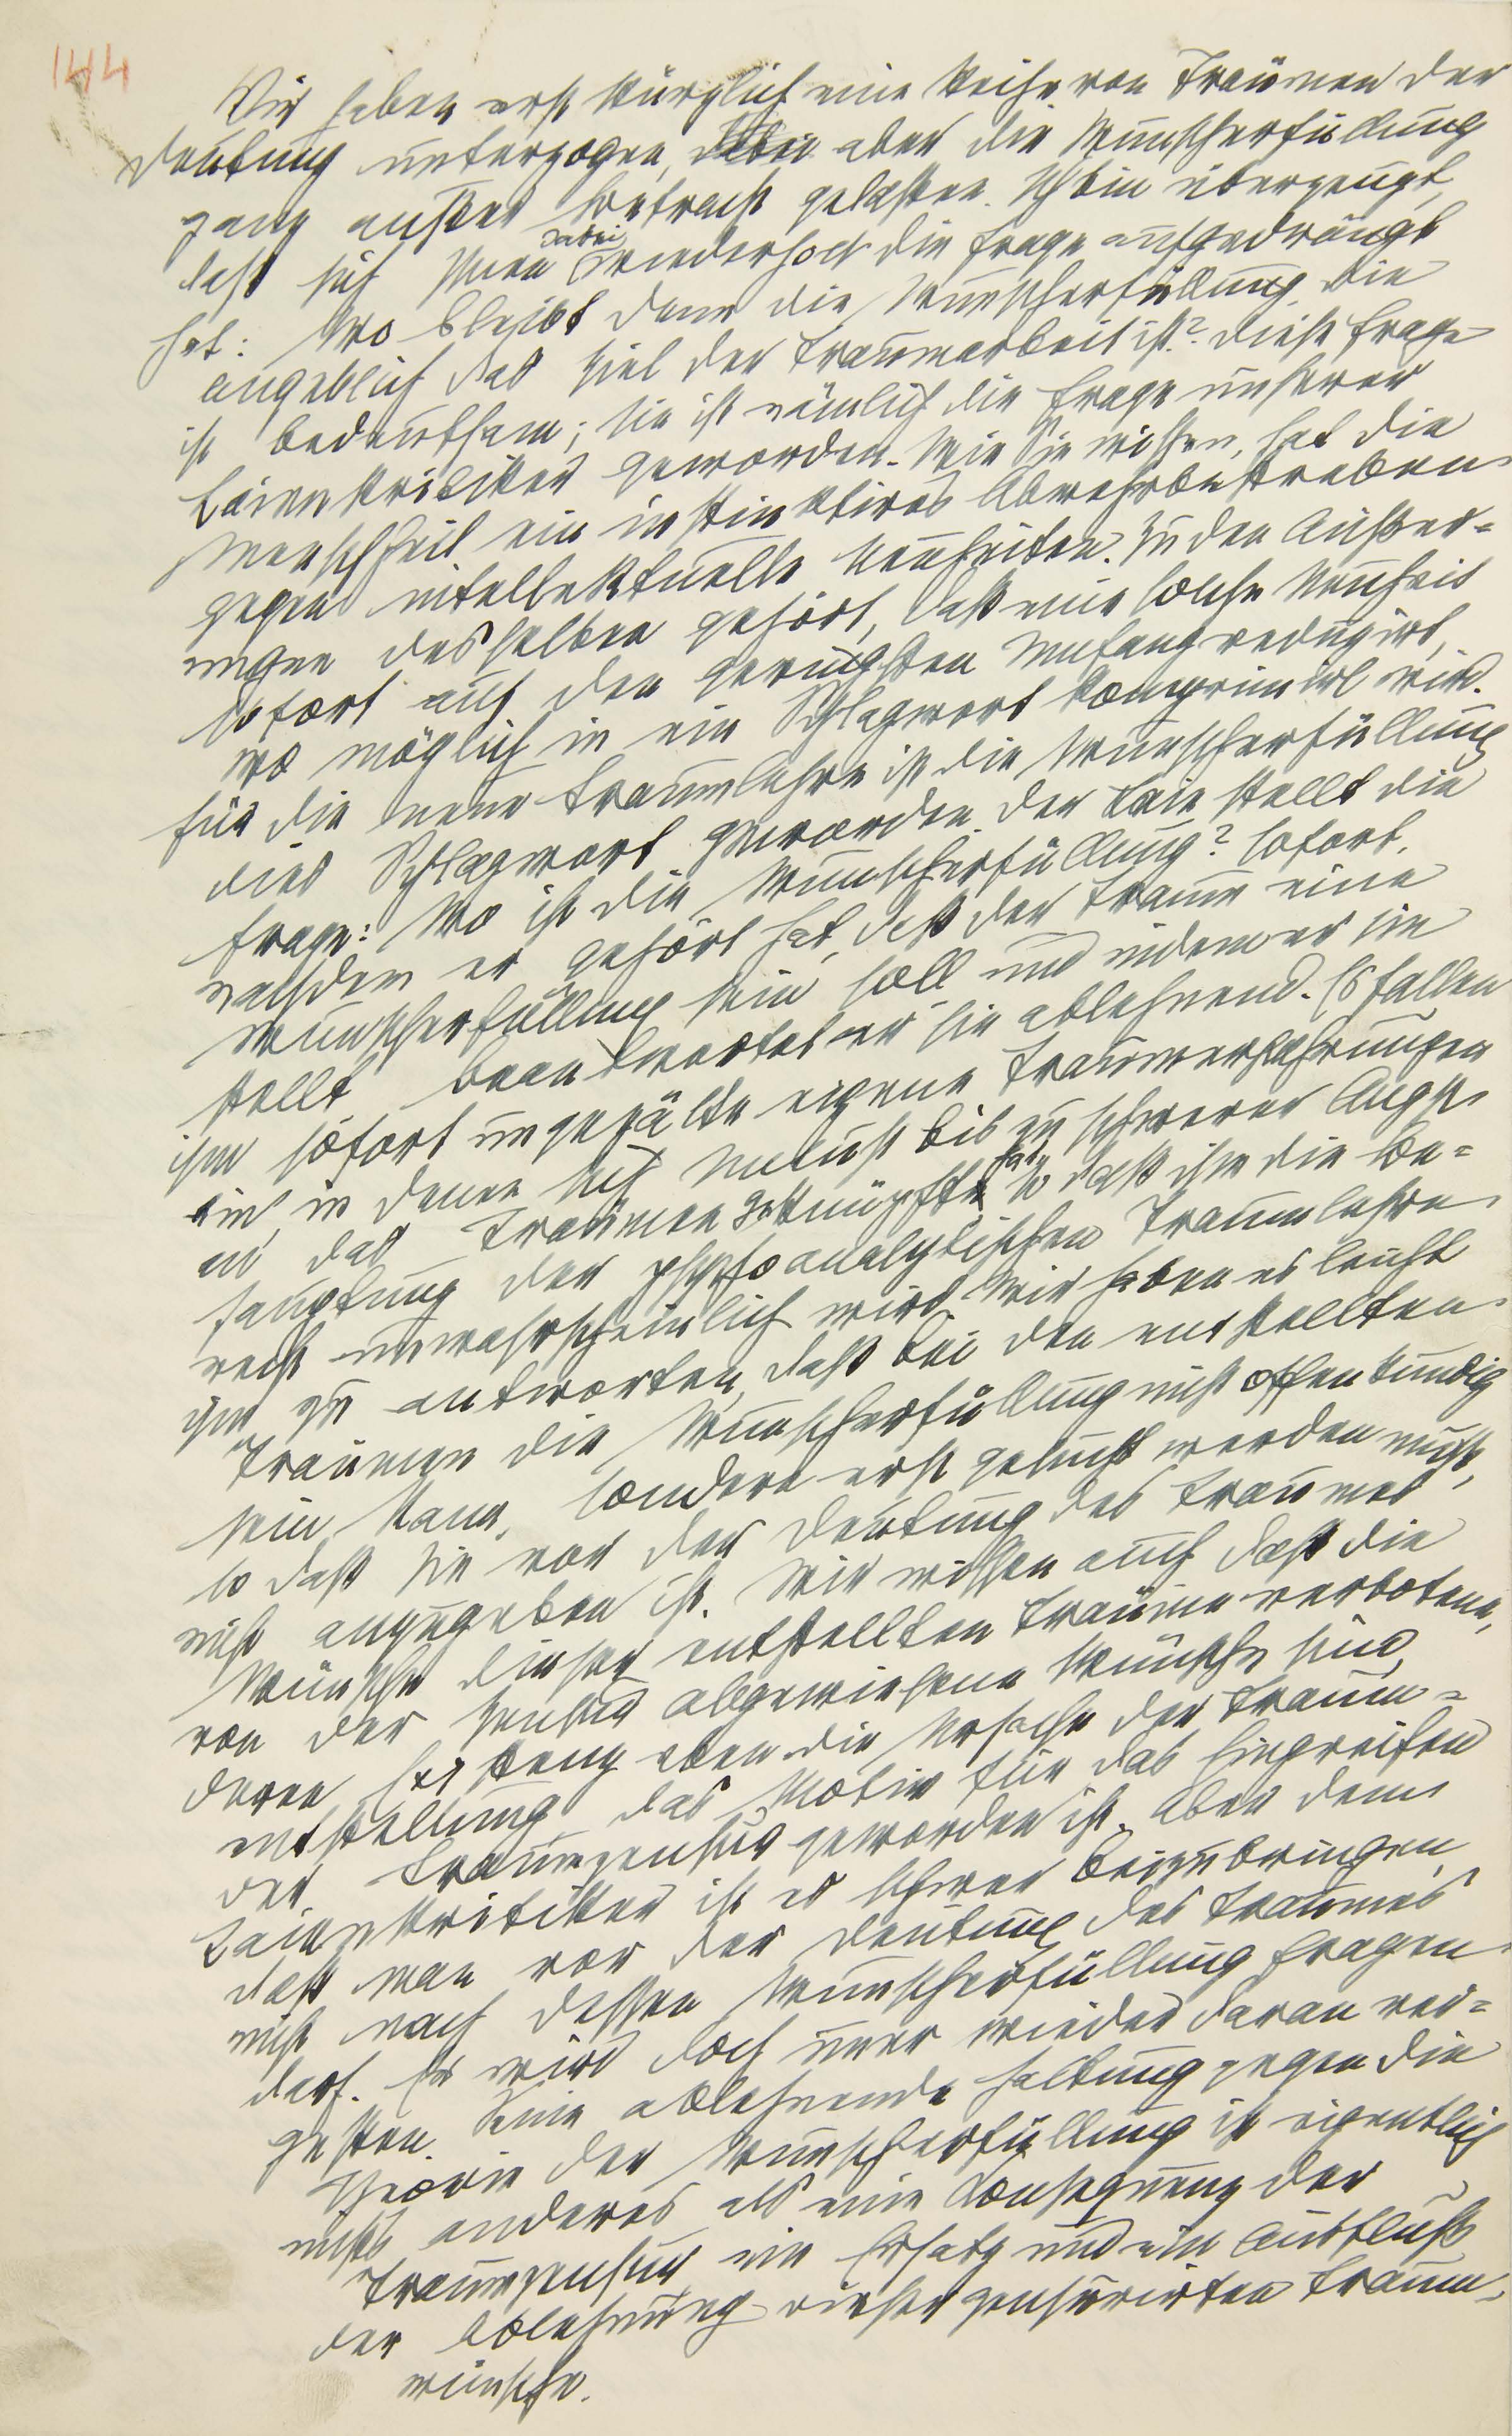 144
Wir haben erst kürzlich eine Reihe von Träumen der
Deutung unterzogen, aber die Wunscherfüllung
ganz außer Betracht gelassen. Ich bin überzeugt,
daß sich Ihnen dabei wiederholt die Frage aufgedrängt
hat: Wo bleibt denn die Wunscherfüllung, die
angeblich das Ziel der Traumarbeit ist? Diese Frage
ist bedeutsam; sie ist nämlich die Frage unserer
Laienkritiker geworden. Wie Sie wissen, hat die
Menschheit ein instinktives Abwehrbestreben
gegen intellektuelle Neuheiten. Zu den Äußer=
ungen desselben gehört, daß eine solche Neuheit
sofort auf den geringsten Umfang reduzirt,
wo möglich in ein Schlagwort komprimirt wird.
Für die neue Traumlehre ist die Wunscherfüllung
dies Schlagwort geworden. Der Laie stellt die
Frage: Wo ist die Wunscherfüllung? Sofort,
nachdem er gehört hat, daß der Traum eine
Wunscherfüllung sein soll und indem er sie
stellt beantwortet er sie ablehnend. Es fallen
ihm sofort ungezählte eigene Traumerfahrungen
ein, in denen sich Unlust bis zu schwerer Angst
an das Träumen geknüpft hat, so daß ihm die Be=
hauptung der psychoanalytischen Traumlehre
recht unwahrscheinlich wird. Wir haben es leicht
ihm zu antworten, daß bei den entstellten
Träumen die Wunscherfüllung nicht offenkundig
sein kann, sondern erst gesucht werden muß,
so daß sie vor der Deutung des Traumes
nicht anzugeben ist. Wir wissen auch daß die
Wünsche dieser entstellten Träume verbotene,
von der Zensur abgewiesene Wünsche sind,
deren Existenz eben die Ursache der Traum=
entstellung, das Motiv für das Eingreifen
der Traumzensur geworden ist. Aber dem
Laienkritiker ist es schwer beizubringen,
daß man vor der Deutung des Traumes
nicht nach dessen Wunscherfüllung fragen
darf. Er wird doch immer wieder daran ver=
gessen. Seine ablehnende Haltung gegen die
Theorie der Wunscherfüllung ist eigentlich
nichts anderes als eine Konsequenz der
Traumzensur ein Ersatz und ein Ausfluß
der Ablehnung dieser zensurirten Traum=
wünsche.